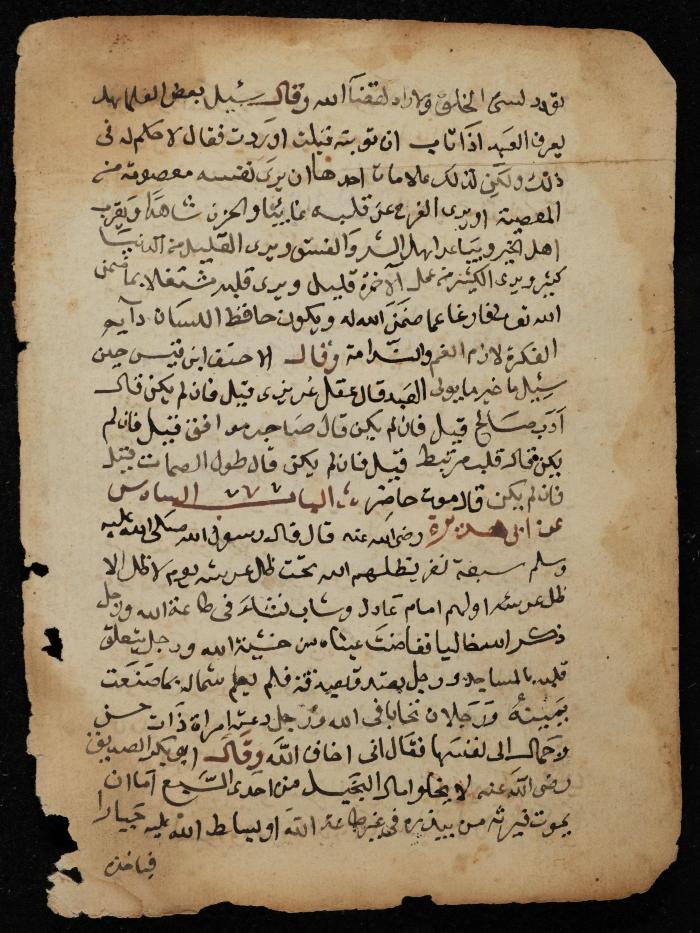 تودد لسيئ الخلق ولا راد لقضاء الله وقال سئيل بعض العلما هل
يعرف العبد اذا تاب ان توبته قبلت او ردت فقال لا حكم له فى
ذلك ولكن لذلك علامات احدها ان يرى نفسه معصومة من
المعصية او يرى الفرح عن قلبه غايبًا والحزن شاهدًا ويقرب
اهل الخير ويباعد اهل الشر والفسق ويرى القليل من الدنيا
كثير ويرى الكثير من عمل الآخرة قليل ويرى قلبه مشتغلا بما ضمن
الله تعالى فارغا عما ضمن الله له ويكون حافظ اللسان دايم
الفكرة لازم الغم والندامة وقال الاحنف ابن قيس حين
سئيل ما خير ما يوتى العبد قال عقل غريزى قيل فان لم يكن قال
ادب صالح قيل فان لم يكن قال صاحب موافق قيل فان لم
يكن قال قلب مرتبط قيل فان لم يكن قال طول الصمات قيل
فان لم يكن قال موت حاضر الباب السادس
عن ابى هريرة رضى الله عنه قال قال رسول الله صلى الله عليه
وسلم سبعة نفر يظلهم الله تحت ظل عرشه يوم لا ظل الا
ظل عرشه اولهم امام عادل وشاب نشاء فى طاعة الله ورجل
ذكر الله خاليا ففاضت عيناه من خشية الله ورجل يتعلق
قلبه بالمساجد ورجل يصدق صدقة فلم يعلم شماله بما صنعت
يمينه ورجلان تحابا فى الله ورجل دعته امراة ذات حسن
وجمال الى نفسها فقال انى اخاف الله وقال ابى بكر الصديق
رضى الله عنه لا يخلوا مال البخيل من احدى السبع اما ان
يموت فيرثه من يبذره فى غير طاعة الله او يسلط الله عليه جبارا
فياخذه